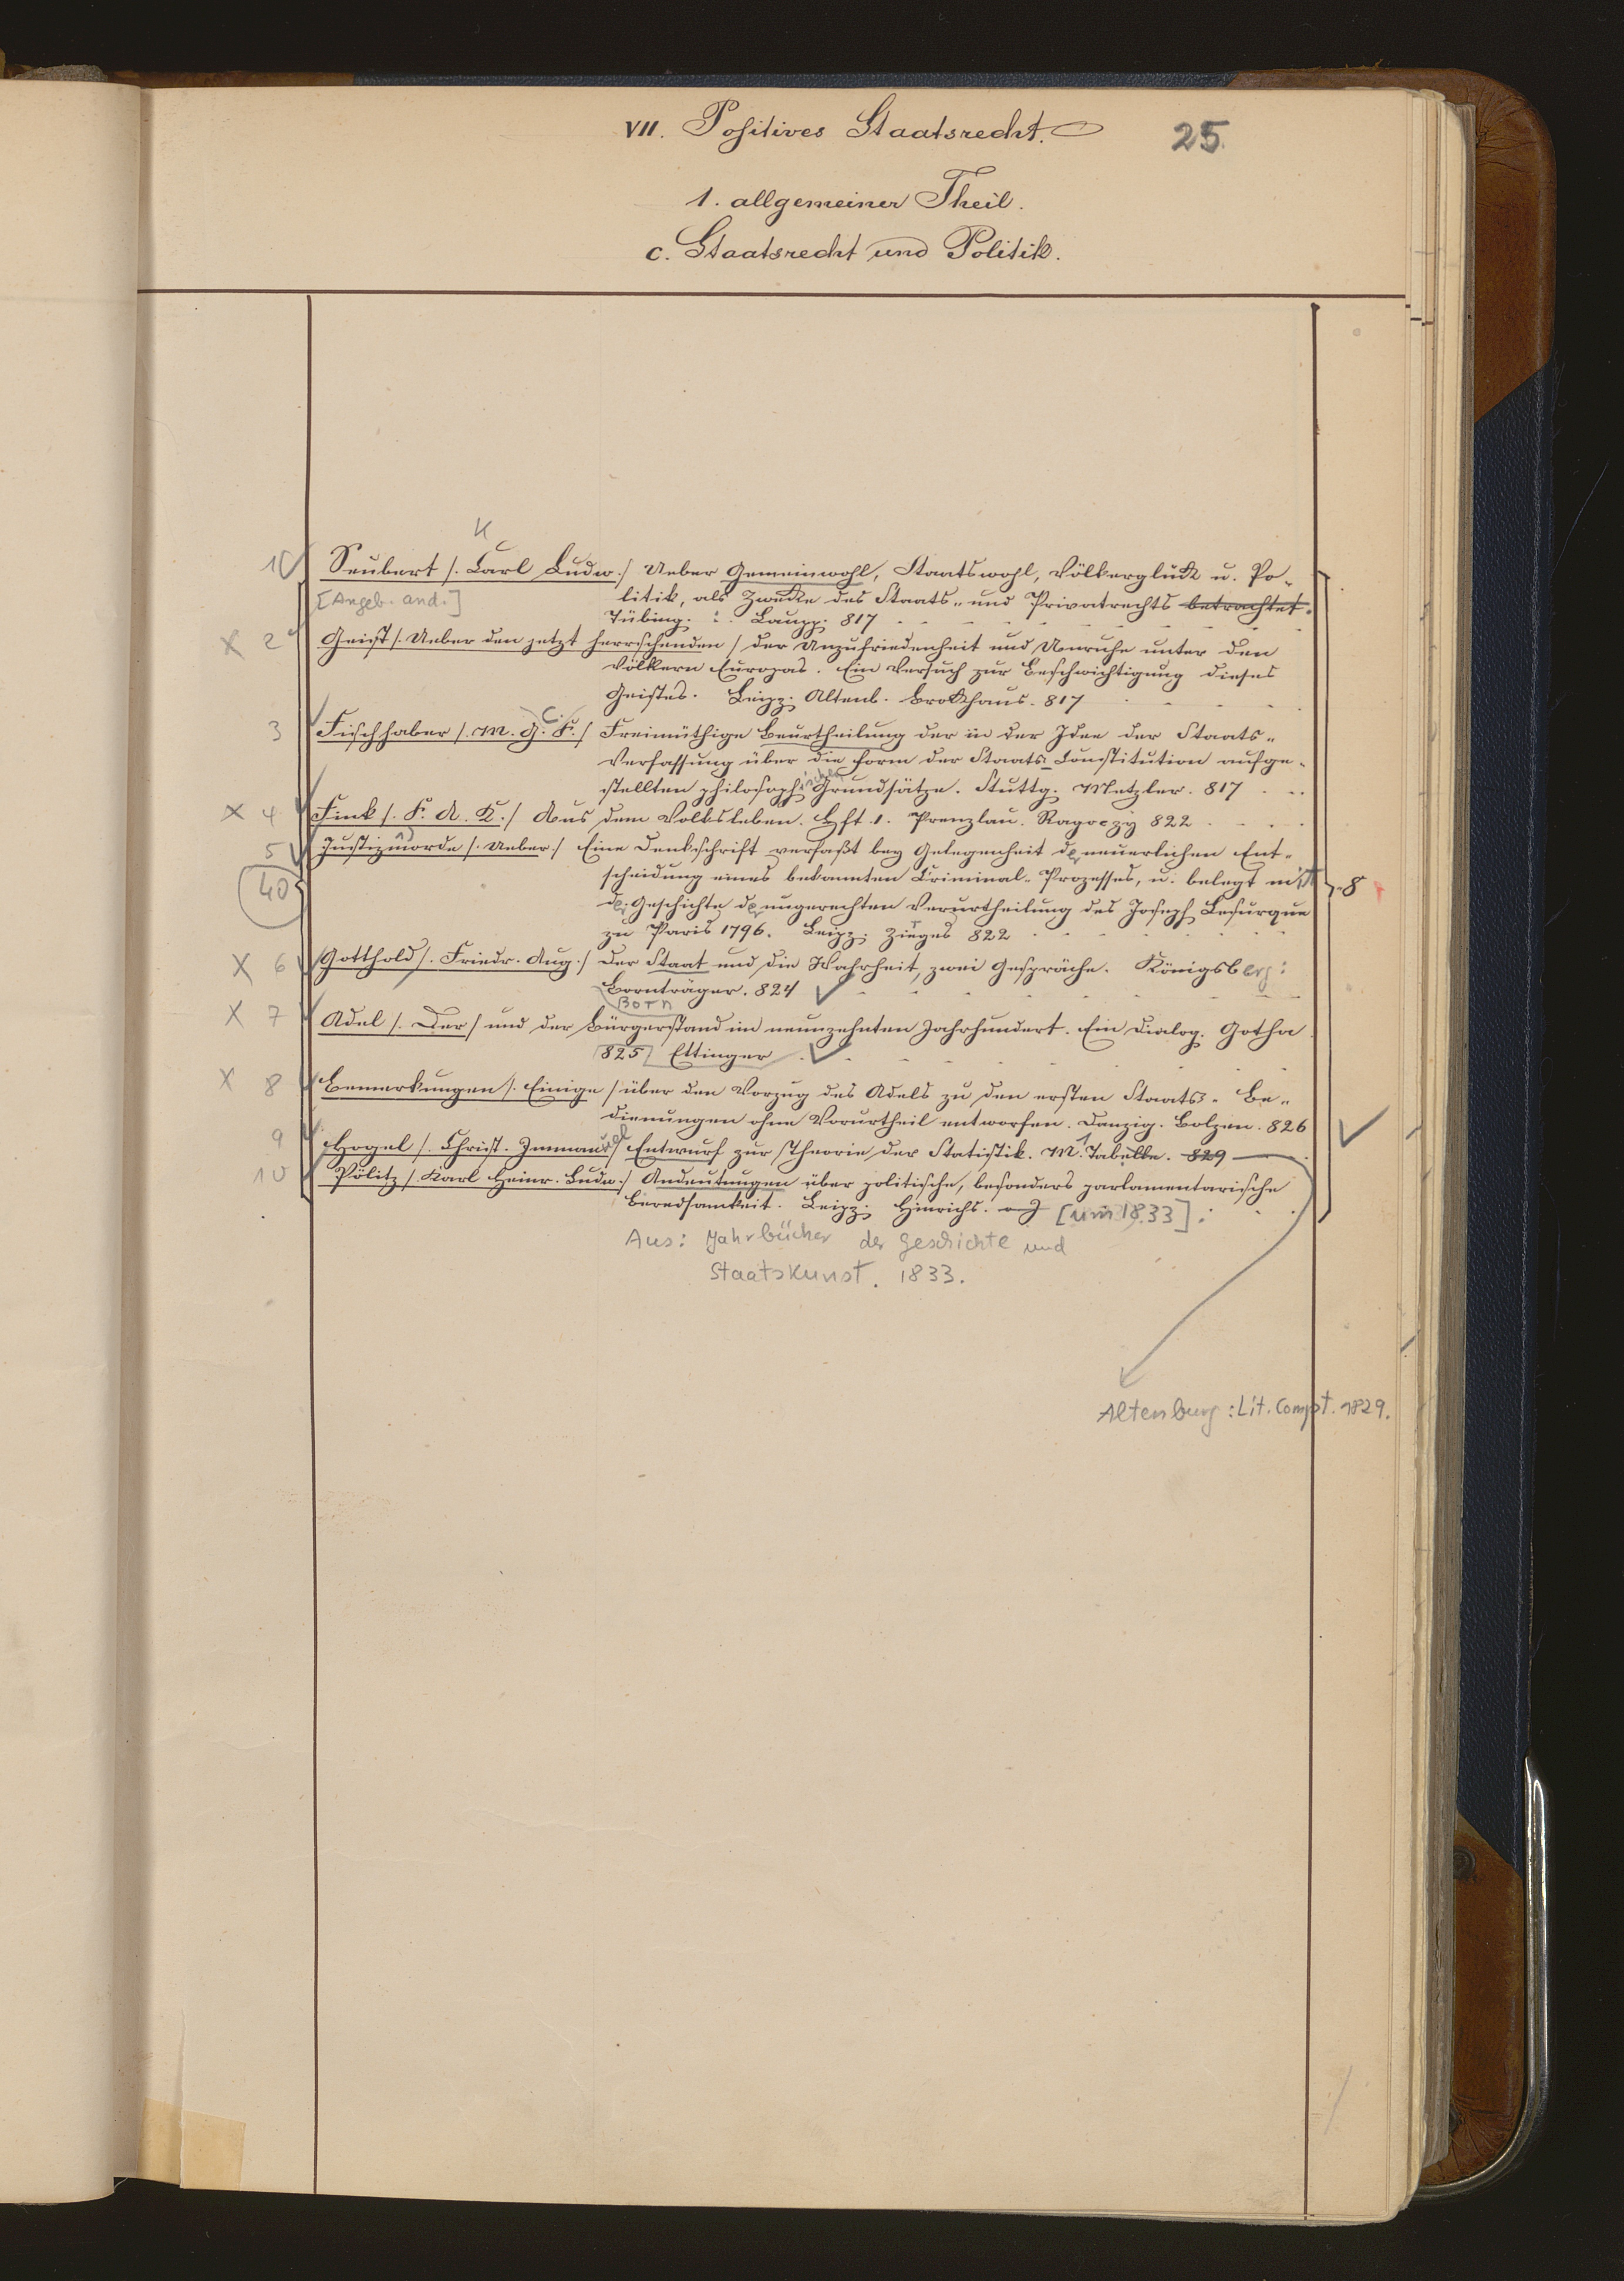 VII. Positives Staatsrecht.
25.
1. allgemeiner Theil.
c. Staatsrecht und Politik.
K
1 Seubert /. Carl Ludw. / Ueber Gemeinwohl, Staatswohl, Völkerglück u. Po-
[Angeb. and.] litik, als Zwecke des Staats- und Privatrechts betrachtet.
Tübing. : Laupp. 817
X 2 Geist /. Ueber den jetzt herrschenden / der Unzufriedenheit und Unruhe unter den
Völkern Europas. Ein Versuch zur Beschwichtigung dieses
Geistes. Leipz. Altenb. Brockhaus. 817
3 Fischhaber /. M. G. C. F. / Freimüthige Beurtheilung der in der Idee der Staats-
Verfassung über die Form der Staats-Constitution aufge-
stellten philosophischen Grundsätze. Stuttg. Metzler. 817
X 4 Fink /. F. A. K. / Aus dem Volksleben. Hft. 1. Prenzlau. Ragoczy 822
5 Justizmorde /. Ueber / Eine Denkschrift verfaßt bey Gelegenheit der neuerlichen Ent-
40 scheidung eines bekannten Criminal-Prozesses, u. belegt mit 8
der Geschichte der ungerechten Verurtheilung des Joseph Lesurque
zu Paris 1796. Leipz. 822
X 6 Gotthold /. Friedr. Aug. / Der Staat und die Wahrheit, zwei Gespräche. Königsberg:
Bornträger. 824
Born
X 7 Adel /. Der / und der Bürgerstand im neunzehnten Jahrhundert. Ein Dialog. Gotha
825 Ettinger
X 8 Bemerkungen /. Einige / über den Vorzug des Adels zu den ersten Staats-Be-
dienungen ohne Vorurtheil entworfen. Danzig. Bolzen. 826
9 Hogel /. Christ. Immanuel / Entwurf zur Theorie der Statistik. M. 1 Tabelle. 829
10 Pölitz /. Karl Heinr. Ludw. / Andeutungen über politische, besonders parlamentarische
Beredsamkeit. Leipz. Hinrichs. oJ [um 1833].
Aus: Jahrbücher der Geschichte und
Staatskunst. 1833.
Altenburg: Lit. Compt. 1829.